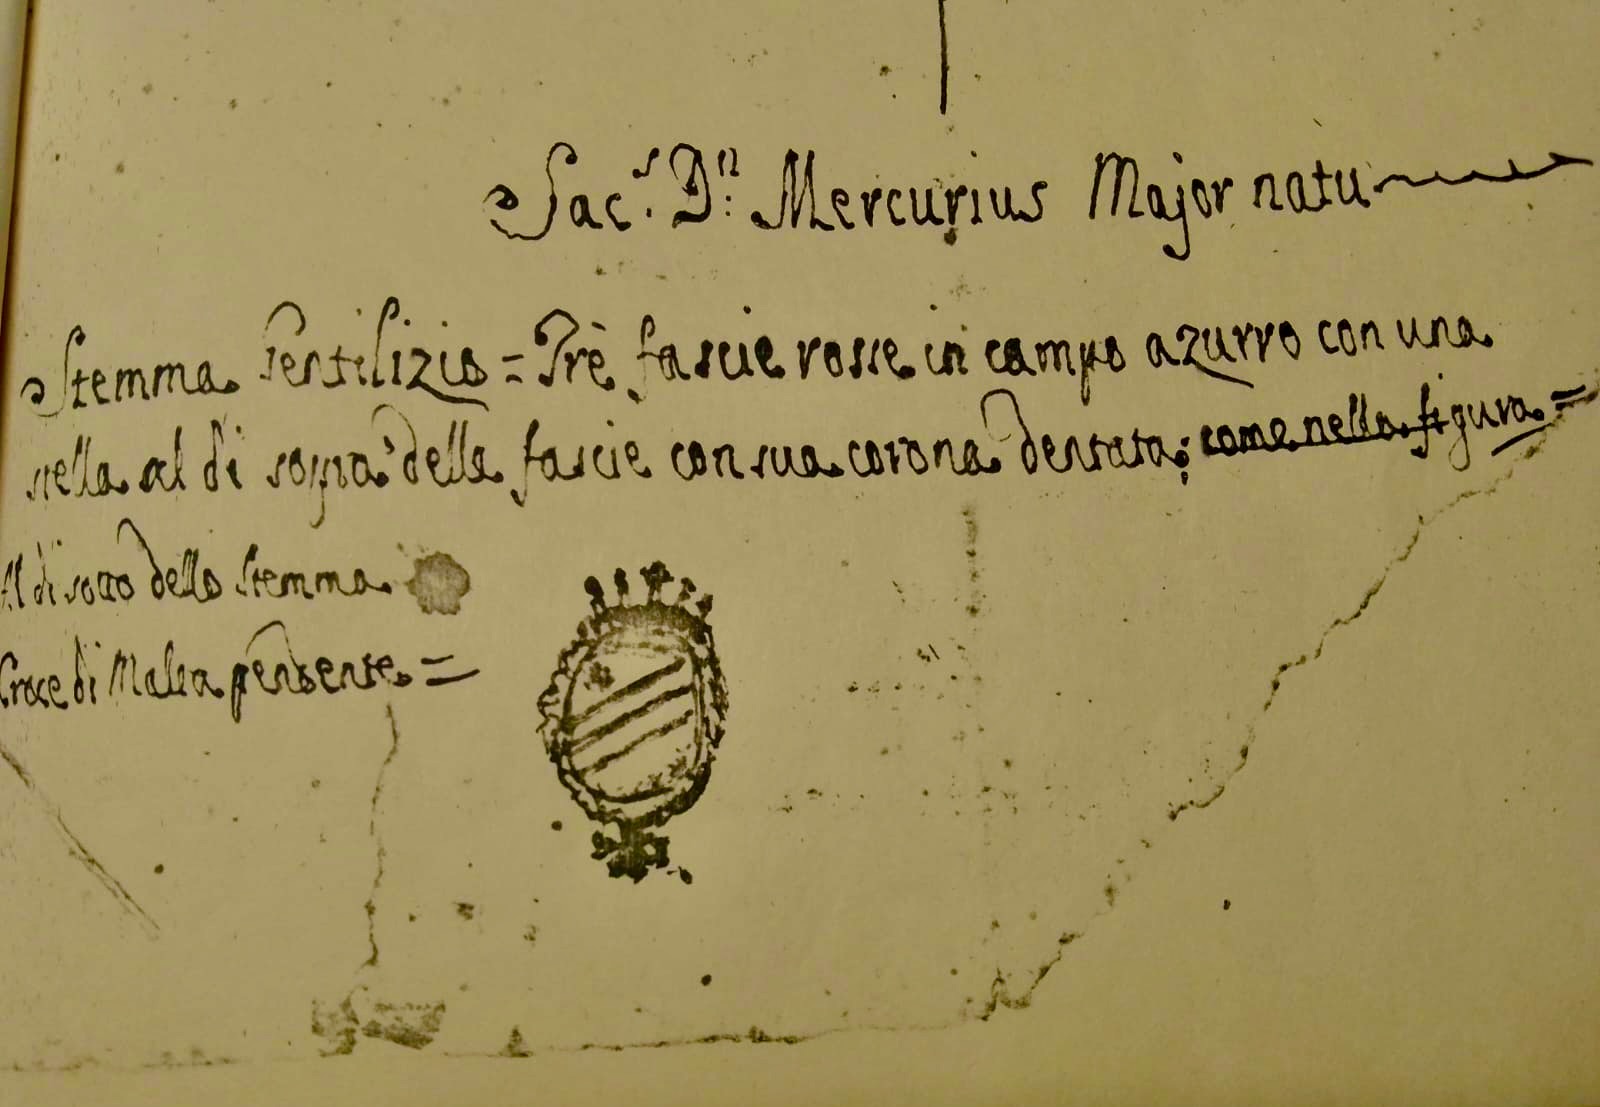 Sac.s Dn: Mercurius Major natu
Stemma Gentilizio = Trè fascie rosse in campo azurro con una
stella al di sopra della fascie con sua corona dentata; come nella figura =
Al di sotto dello Stemma
Croce di Malta pendente =